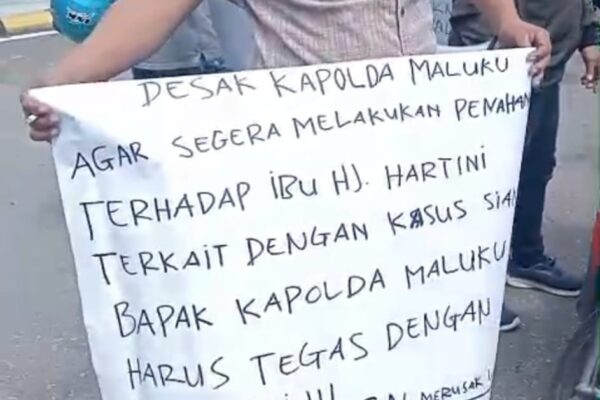 DESAK KAPOLDA MALUKU
AGAR SEGERA MELAKUKAN PENAHAN
TERHADAP IBU HJ. HARTINI
TERKAIT DENGAN KASUS SIAN
BAPAK KAPOLDA MALUKU
HARUS TEGAS DENGAN
MERUSAK